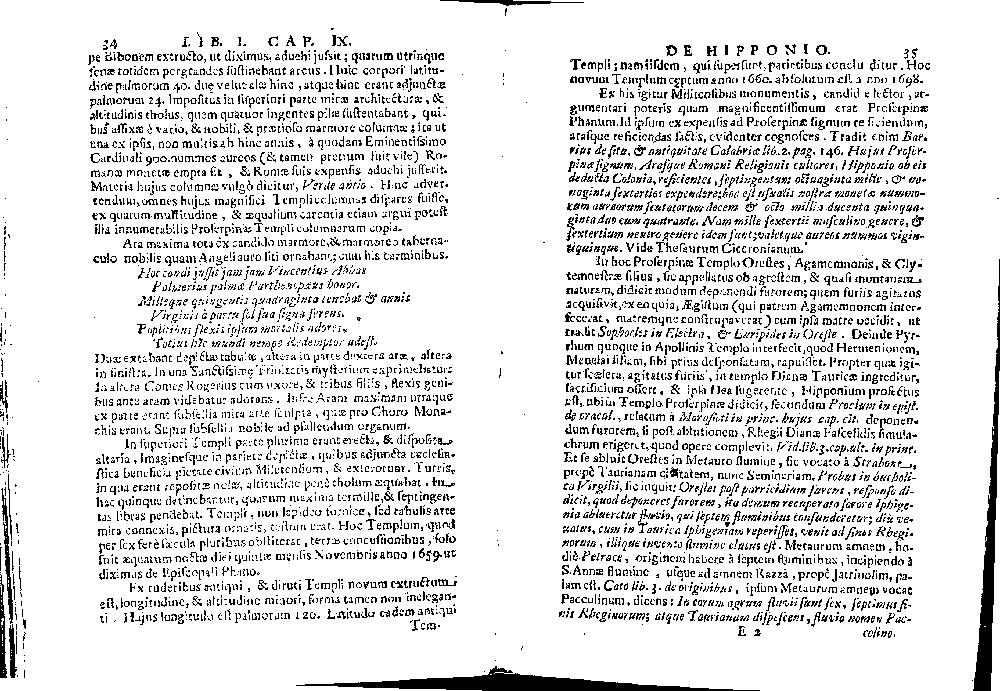 34 LIB. I. CAP. IX.
pe Bibonem extructo, ut diximus, aduehi jussit; quarum utrinque
senæ totidem pergrandes sustinebant arcus. Huic corpori latitu-
dine palmorum 40. duę veluc alæ hinc, atque hinc erant adjunctæ
palmorum 24. Impositus in superiori parte miræ architecturæ, &
altitudinis tholus, quem quatuor ingentes pilæ sustentabant, qui-
bus affixæ è vario, & nobili, & prætioso marmore columnæ; ita ut
una ex ipsis, non multis ab hinc annis, à quodam Eminentissimo
Cardinali 900. nummos aureos (& tamen pretium fuit vile) Ro-
manæ monetæ empta sit, & Romæ suis expensis aduehi jusserit.
Materia hujus columnæ vulgò dicitur, Verde antio. Hinc adver-
tendum, omnes hujus magnifici Templi columnas dispares fuisse,
ex quarum multitudine, & æqualium carentia etiam argui potest
illa innumerabilis Proserpinæ Templi columnarum copia.
Ara maxima tota ex candido marmore, & marmoreo taberna-
culo nobilis quam Angeli auro liti ornabant; cum his carminibus.
Hoc condi jussit jam jam Vincentius Abbas
Palmerius palmæ Parthenopæus honor.
Milleque quingentis quadraginta tenebat & annis
Virginis à partu sol sua signa ferens.
Poplitibus flexis ipsum mortalis adores,
Totius hic mundi nempe Redemptor adest.
Duæ extabant depictæ tabulæ, altera in parte dextera aræ, altera
in sinistra. In una Sanctissimę Trinitatis mysterium exprimebatur:
In altera Comes Rogerius cum uxore, & tribus filiis, flexis geni-
bus ante aram videbatur adorans. Infra Aram maximam utraque
ex parte erant subsellia mira arte sculpta, quæ pro Choro Mona-
chis erant. Supra subsellia nobile ad psallendum organum.
In superiori Templi parte plurima erant erecta, & disposita
altaria, Imaginesque in pariete depictæ, quibus adjuncta ecclesia-
stica beneficia pietate civium Miletensium, & exterorum. Turris,
in qua erant repositæ nolæ, altitudine penè tholum æquabat. In
hac quinque detinebantur, quarum maxima termille, & septingen-
tas libras pendebat. Templi, non lapideo fornice, sed tabulis arte
mira connexis, pictura ornatis, tectum erat. Hoc Templum, quod
per sex ferè sæcula pluribus obstiterat, terræ concussionibus, solo
fuit æquatum nocte diei quintæ mensis Novembris anno 1659. ut
diximus de Episcopali Phano.
Ex ruderibus antiqui, & diruti Templi novum extructum
est, longitudine, & altitudine minori, forma tamen non inelegan-
ti. Hujus longitudo est palmorum 120. Latitudo eadem antiqui
Tem-
DE HIPPONIO. 35
Templi; nam iisdem, qui supersunt, parietibus concluditur. Hoc
novum Templum cęptum anno 1660. absolutum est anno 1698.
Ex his igitur Militensibus monumentis, candide lector, ar-
gumentari poteris quam magnificentissimum erat Proserpinæ
Phanum. Id ipsum ex expensis ad Proserpinæ signum reficiendum,
arasque reficiendas factis, evidenter cognosces. Tradit enim Bar-
rius de situ, & antiquitate Calabriæ lib. 2. pag. 146. Hujus Proser-
pinæ signum, Arasque Romani Religionis cultores, Hipponio ab eis
deducta Colonia, reficientes, septingentum octuaginta mille, & no-
noginta sextertios expendere; hoc est usualis nostræ monetæ nummo-
rum aureorum scutatorum decem & octo millia ducenta quinqua-
ginta duo cum quadrante. Nam mille sextertii masculino genere, &
sextertium neutro genere idem sunt; valetque aureos nummos vigin-
tiquinque. Vide Thesaurum Ciceronianum.
In hoc Proserpinæ Templo Orestes, Agamemnonis, & Cly-
temnestræ filius, sic appellatus ob agrestem, & quasi montanam
naturam, didicit modum deponendi furorem; quem furiis agitatus
acquisivit, ex eo quia, Ægistum (qui patrem Agamemnonem inter-
fecerat, matremque constupraverat) cum ipsa matre occidit, ut
tradit Sophocles in Electra, & Euripides in Oreste. Deinde Pyr-
rhum quoque in Apollinis Templo interfecit, quod Hermionem,
Menelai filiam, sibi prius desponsatam, rapuisset. Propter quæ igi-
tur scelera, agitatus furiis, in templo Dianæ Tauricæ ingreditur,
sacrificium offert, & ipsa Dea sugerente, Hipponium profectus
est, ubi in Templo Proserpinæ didicit, secundum Proclum in epist.
de oracul. relatum à Marafioti in princ. hujus cap. cit. deponen-
dum furorem, si post ablutionem, Rhegii Dianæ Pascelidis simula-
chrum erigeret, quod opere complevit. Vid. lib. 3. cap. ult. in princ.
Et se abluit Orestes in Metauro flumine, sic vocato à Strabone,
prope Taurianam civitatem, nunc Seminariam. Probus in bucholi-
ca Virgilii, sic inquit: Orestes post parricidium furens, responso di-
dicit, quod deponeret furorem, ita demum recuperata sorore Iphige-
nia ablueretur fluvio, qui septem fluminibus confunderetur; diu ve-
xatus, cum in Taurica Iphigeniam reperisset, venit ad fines Rhegi-
norum, illique invento flumine elutus est. Metaurum amnem, ho-
diè Petrace, originem habere à septem fluminibus, incipiendo à
S. Annæ flumine, usque ad amnem Razzà, propè Jatrinolim, pa-
lam est. Cato lib. 3. de originibus, ipsum Metaurum amnem vocat
Pacculinum, dicens: In eorum agrum fluvii sunt sex, septimus fi-
nis Rheginorum; atque Taurianum dispescens, fluvio nomen Pac-
E 2 colino.